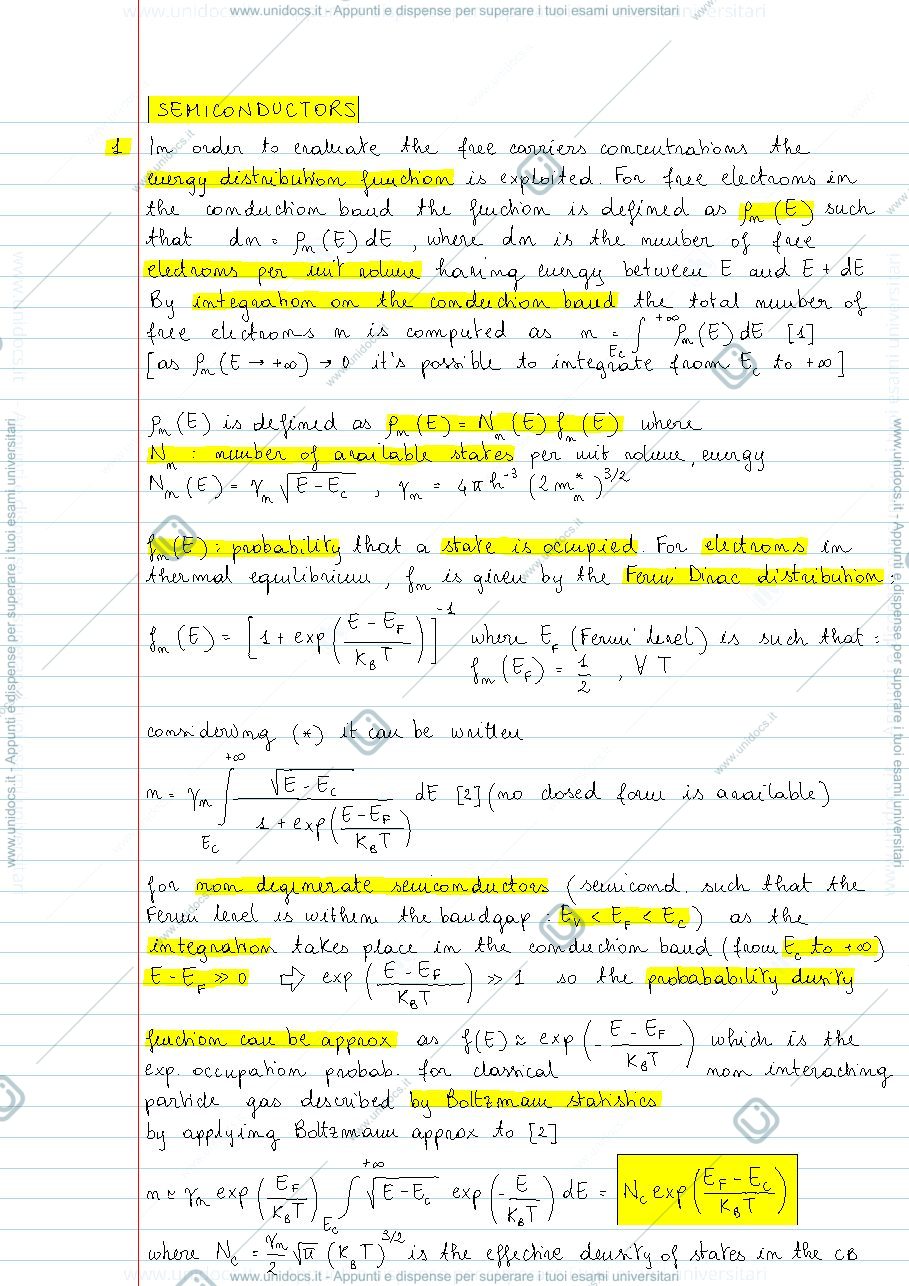 www.unidocs.it - Appunti e dispense per superare i tuoi esami universitari
SEMICONDUCTORS
1 In order to evaluate the free carriers concentrations the
energy distribution function is exploited. For free electrons in
the conduction band the function is defined as ρn (E) such
that dn = ρn (E) dE , where dn is the number of free
electrons per unit volume having energy between E and E + dE
By integration on the conduction band the total number of
free electrons n is computed as n = ∫_{Ec}^{+∞} ρn (E) dE [1]
[as ρn (E → +∞) → 0 it's possible to integrate from Ec to +∞]
ρn (E) is defined as ρn (E) = Nn (E) fn (E) where
Nn : number of available states per unit volume, energy
Nn (E) = γn √(E - Ec) , γn = 4π h^-3 (2 mn*)^3/2
fn (E) : probability that a state is occupied. For electrons in
thermal equilibrium, fn is given by the Fermi Dirac distribution :
fn (E) = [1 + exp((E - EF)/(KB T))]^-1 where EF (Fermi level) is such that :
fn (EF) = 1/2 , ∀ T
considering (*) it can be written
n = γn ∫_{Ec}^{+∞} √(E - Ec) / (1 + exp((E - EF)/(KB T))) dE [2] (no closed form is available)
for non degenerate semiconductors (semicond. such that the
Fermi level is withem the bandgap : Ev < EF < Ec) as the
integration takes place in the conduction band (from Ec to +∞)
E - EF ≫ 0 ⇨ exp((E - EF)/(KB T)) ≫ 1 so the probabability dusity
function can be approx as f(E) ≈ exp(- (E - EF)/(KB T)) which is the
exp. occupation probab. for classical non interacting
particle gas described by Boltzmann statistics
by applying Boltzmann approx to [2]
n ≃ γn exp(EF/(KB T)) ∫_{Ec}^{+∞} √(E - Ec) exp(- E/(KB T)) dE = Nc exp((EF - Ec)/(KB T))
where Nc = γn/2 √π (KB T)^3/2 is the effective density of states in the CB
www.unidocs.it - Appunti e dispense per superare i tuoi esami universitari